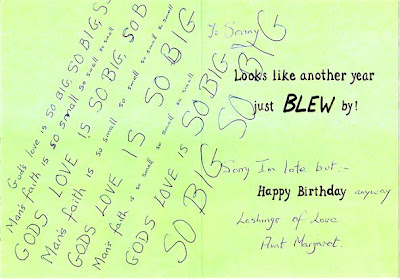 God's love is SO BIG, SO BIG, SO
Man's faith is so small so small so small so small
GODS LOVE IS SO BIG, SO B
Man's faith is so small so small so small so small
GODS LOVE IS SO BIG
Man's faith is so small so small so small so small
GODS LOVE IS SO BIG SO BIG
SO BIG
To Sonny
Looks like another year
just BLEW by!
Sorry I'm late but:-
Happy Birthday anyway
Lashings of Love
Aunt Margaret.